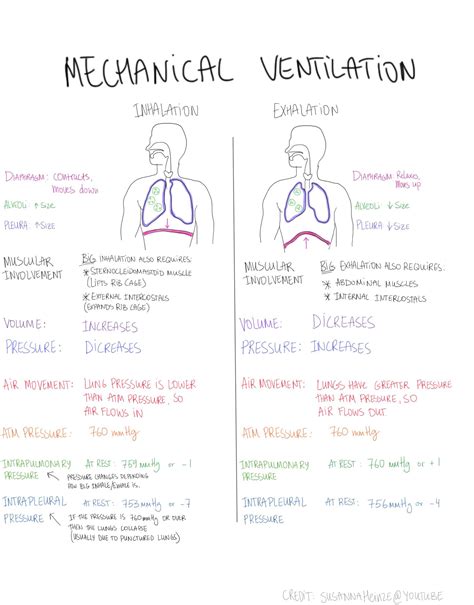 MECHANICAL VENTILATION
INHALATION
DIAPHRAGM: CONTRACTS,
MOVES DOWN
ALVEOLI ↑ SIZE
PLEURA ↑ SIZE
MUSCULAR
INVOLVEMENT
BIG INHALATION ALSO REQUIRES:
* STERNOCLEIDOMASTOID MUSCLE
(LIFTS RIB CAGE)
* EXTERNAL INTERCOSTALS
(EXPANDS RIB CAGE)
VOLUME: INCREASES
PRESSURE: DICREASES
AIR MOVEMENT: LUNG PRESSURE IS LOWER
THAN ATM PRESSURE, SO
AIR FLOWS IN
ATM PRESSURE: 760 mmHg
INTRAPULMONARY
PRESSURE
AT REST: 759 mmHg or -1
PRESSURE CHANGES DEPENDING
HOW BIG INHALE/EXHALE IS.
INTRAPLEURAL
PRESSURE
AT REST: 753 mmHg or -7
IF THE PRESSURE IS 760 mmHg OR OVER
THEN THE LUNGS COLLAPSE
(USUALLY DUE TO PUNCTURED LUNGS)
EXHALATION
DIAPHRAGM: RELAXES,
MOVES UP
ALVEOLI ↓ SIZE
PLEURA ↓ SIZE
MUSCULAR
INVOLVEMENT
BIG EXHALATION ALSO REQUIRES:
* ABDOMINAL MUSCLES
* INTERNAL INTERCOSTALS
VOLUME: DICREASES
PRESSURE: INCREASES
AIR MOVEMENT: LUNGS HAVE GREATER PRESSURE
THAN ATM PRESSURE, SO
AIR FLOWS OUT
ATM PRESSURE: 760 mmHg
INTRAPULMONARY
PRESSURE
AT REST: 760 mmHg or +1
INTRAPLEURAL
PRESSURE
AT REST: 756 mmHg or -4
CREDIT: SUSANNAHEINZE@YOUTUBE